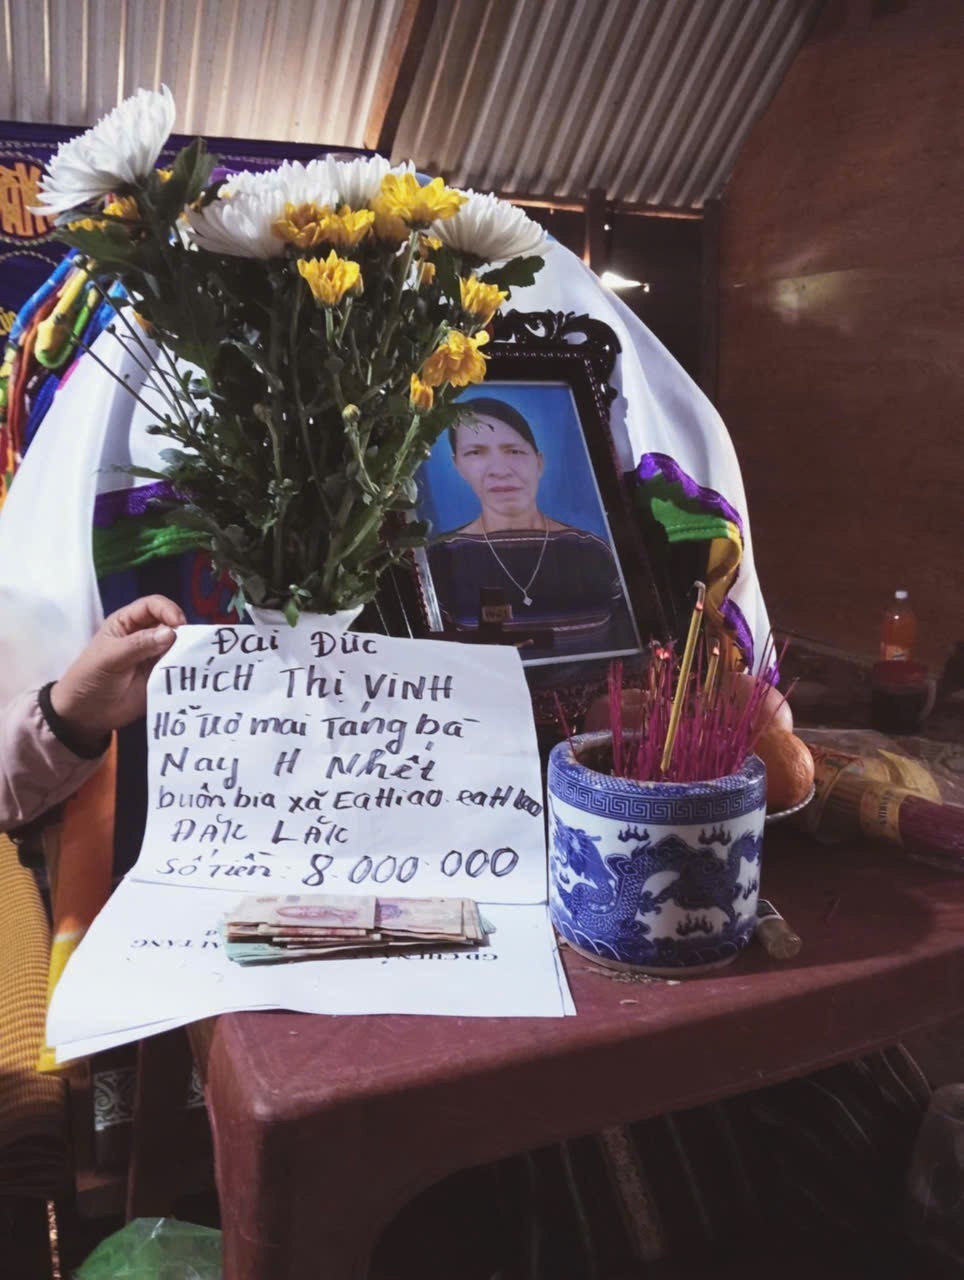 Đại Đức
THÍCH Thị VINH
Hỗ Trợ mai Táng bà
Nay H Nhết
buôn bia xã EaHiao. eaH leo
ĐẮk LẮk
Số Tiền: 8.000.000
AI TANG
GĐ CHE